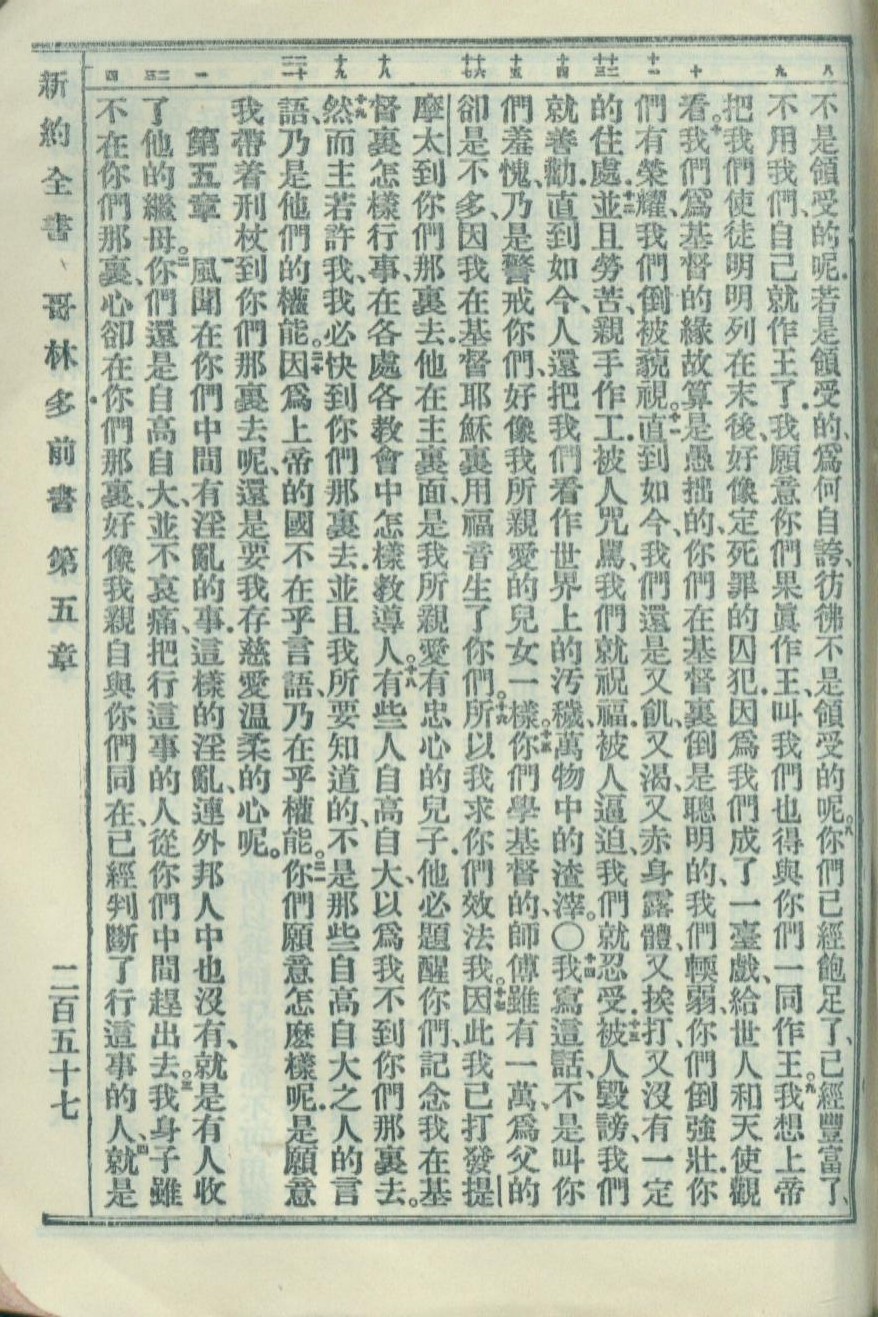 八 九 十 十一 十二 十三 十四 十五 十六 十七 十八 十九 二十 二十一 一 二 三 四
不是領受的呢.若是領受的、爲何自誇、彷彿不是領受的呢。八你們已經飽足了、已經豐富了、
不用我們、自己就作王了、我願意你們果眞作王、叫我們也得與你們一同作王。九我想上帝
把我們使徒明明列在末後、好像定死罪的囚犯.因爲我們成了一臺戲、給世人和天使觀
看。十我們爲基督的緣故算是愚拙的、你們在基督裏倒是聰明的、我們輭弱、你們倒強壯.你
們有榮耀、我們倒被藐視。十一直到如今、我們還是又飢、又渴、又赤身露體、又挨打、又沒有一定
的住處.十二並且勞苦、親手作工.被人咒罵、我們就祝福.被人逼迫、我們就忍受.十三被人毀謗、我們
就善勸.直到如今、人還把我們看作世界上的汚穢、萬物中的渣滓。〇十四我寫這話、不是叫你
們羞愧、乃是警戒你們、好像我所親愛的兒女一樣。十五你們學基督的、師傅雖有一萬、爲父的
卻是不多、因我在基督耶穌裏用福音生了你們。十六所以我求你們效法我。十七因此我已打發提
摩太到你們那裏去.他在主裏面、是我所親愛有忠心的兒子.他必題醒你們、記念我在基
督裏怎樣行事、在各處各教會中怎樣教導人。十八有些人自高自大、以爲我不到你們那裏去。
十九然而主若許我、我必快到你們那裏去.並且我所要知道的、不是那些自高自大之人的言
語、乃是他們的權能。二十因爲上帝的國不在乎言語、乃在乎權能。二一你們願意怎麽樣呢.是願意
我帶着刑杖到你們那裏去呢、還是要我存慈愛溫柔的心呢。
第五章 一風聞在你們中間有淫亂的事.這樣的淫亂、連外邦人中也沒有、就是有人收
了他的繼母。二你們還是自高自大、並不哀痛、把行這事的人從你們中間趕出去。三我身子雖
不在你們那裏、心卻在你們那裏、好像我親自與你們同在、已經判斷了行這事的人、四就是
新約全書、哥林多前書 第五章 二百五十七